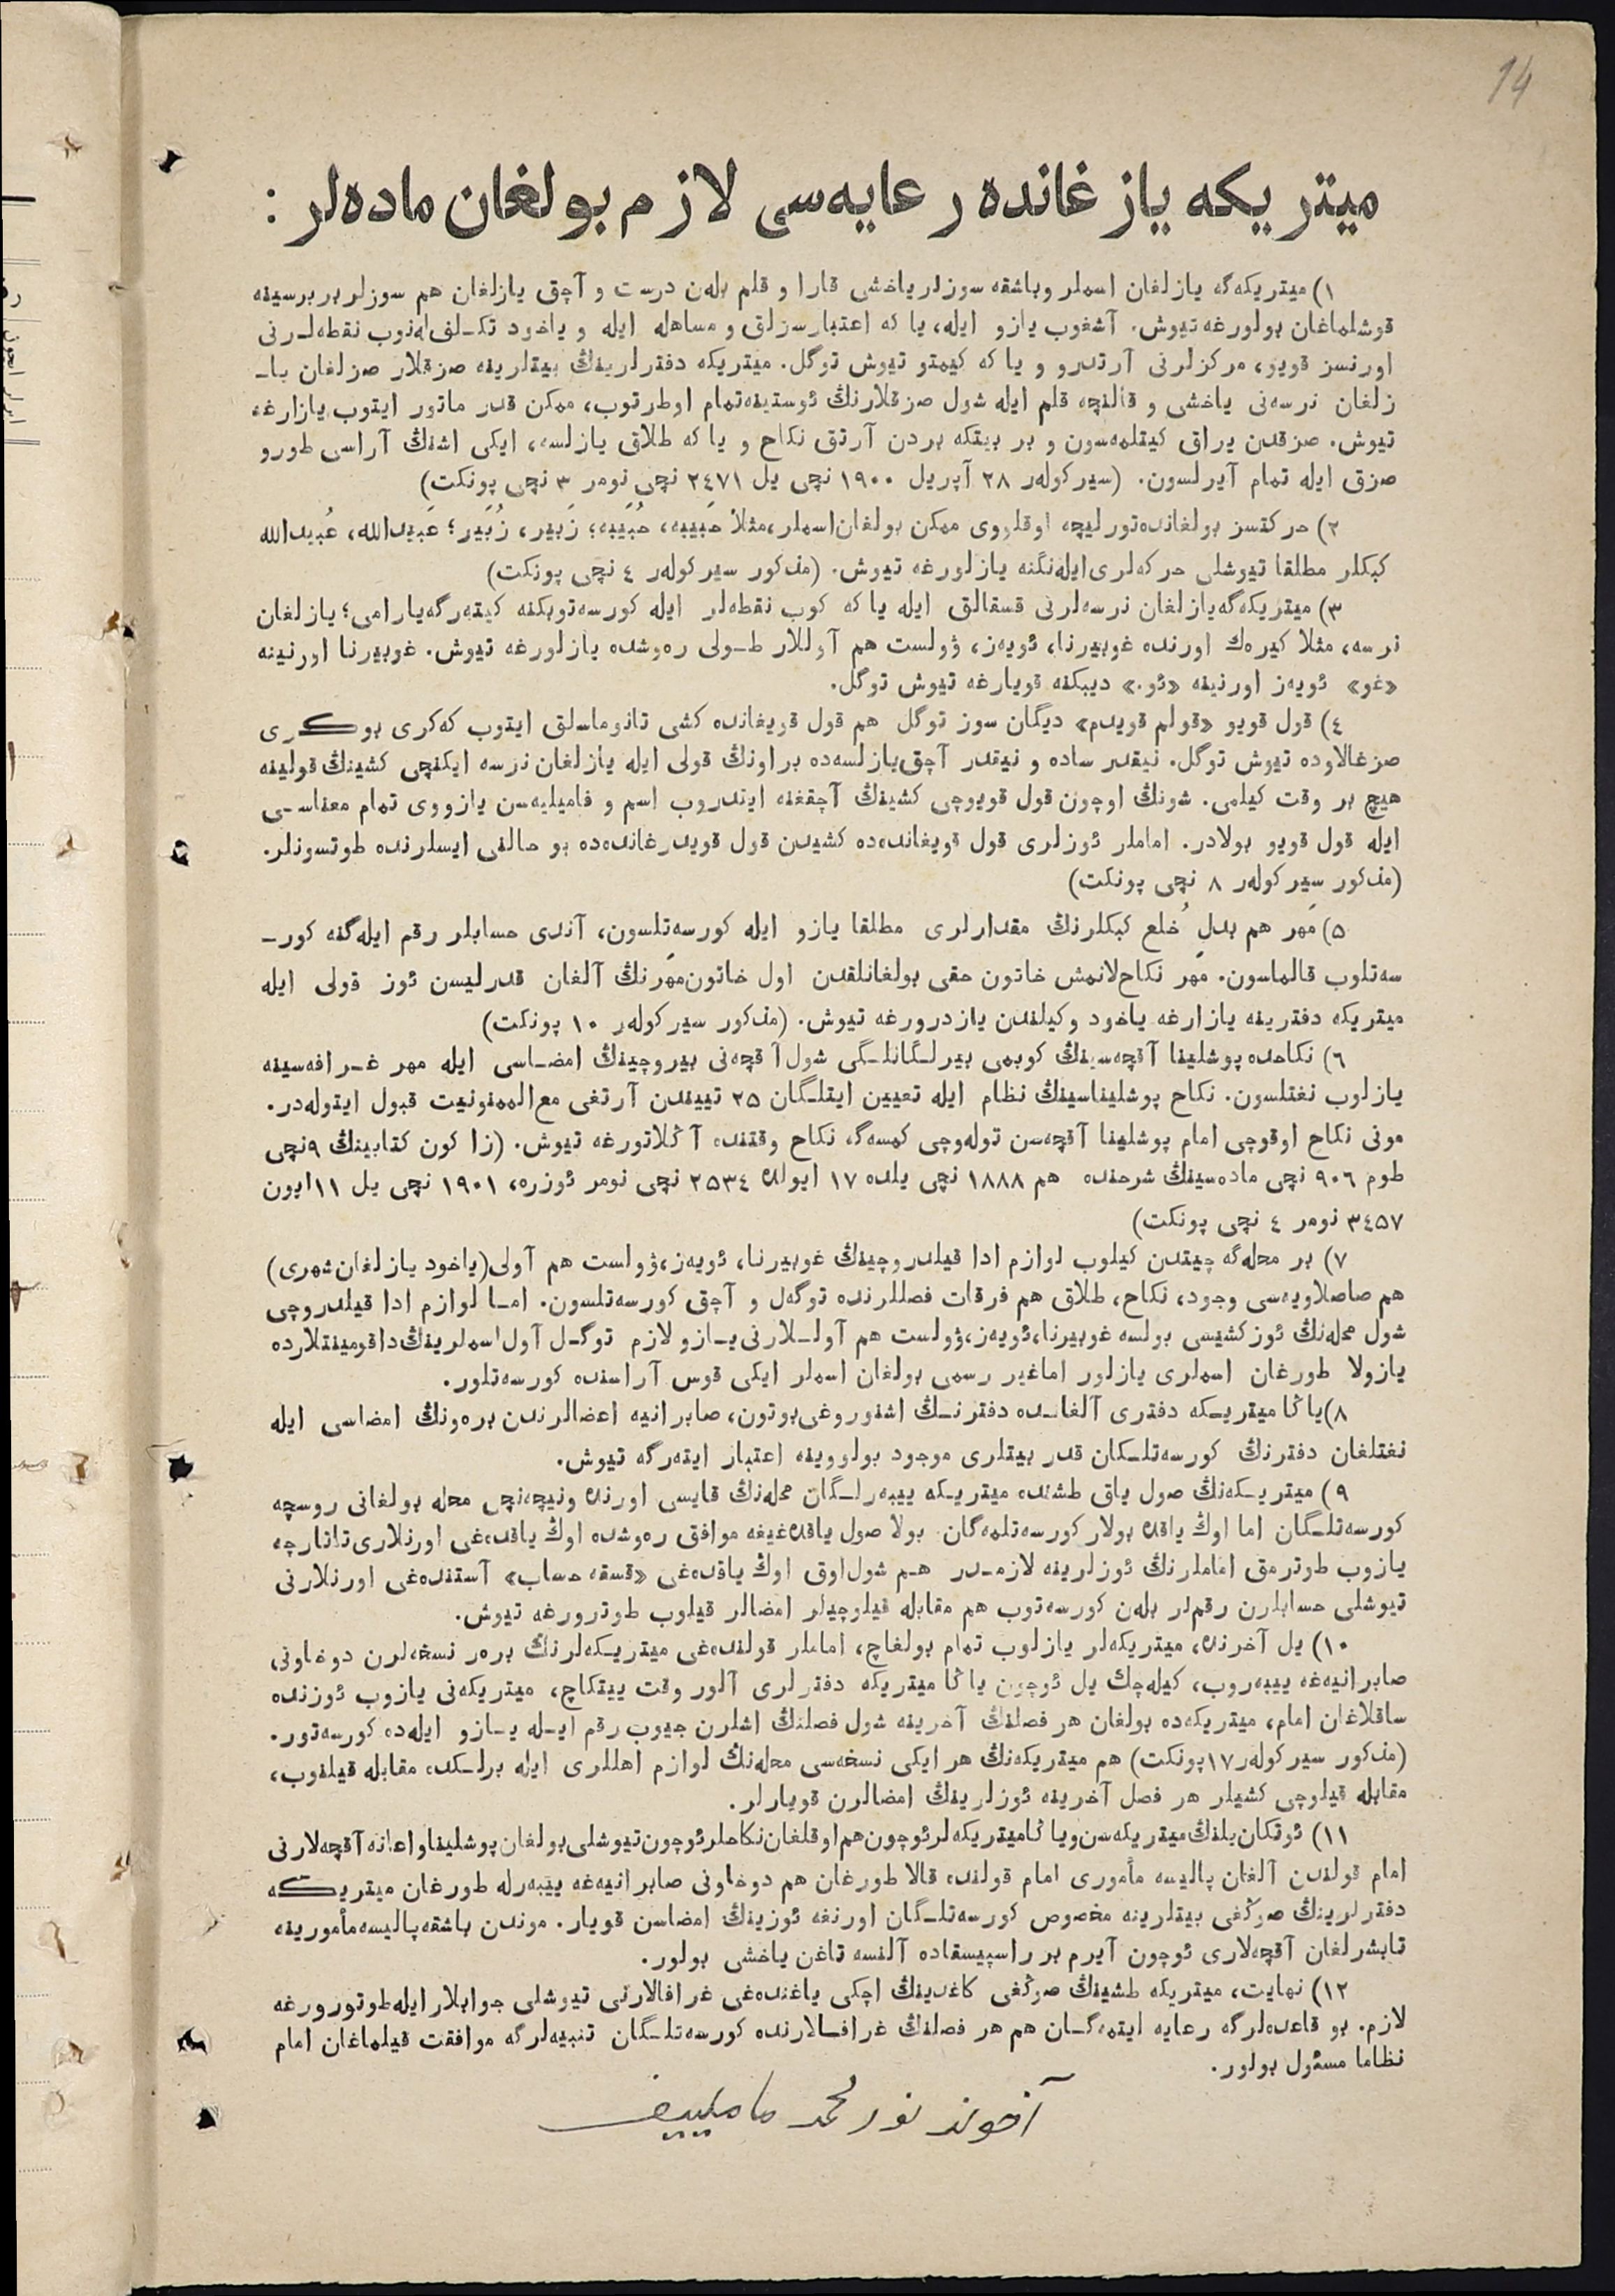 14
ميتريكه يازغانده رعايه‌سى لازم بولغان ماده‌لر :
١) ميتريكه‌گه يازلغان اسملر وباشقه سوزلر ياخشى قارا و قلم بله‌ن درست و آچق يازلغان هم سوزلر بر برسينه
قوشلماغان بولورغه تيوش. آشغوب يازو ايله، يا كه اعتبارسزلق و مساهله ايله و ياخود تكـلفـله‌نوب نقطه‌لـرنى
اورنسز قويو، مركزلرنى آرتدرو و يا كه كيمتو تيوش توگل. ميتريكه دفترلرينڭ بيتلرينه صزقلار صزلغان يا‍ـ
زلغان نرسه‌نى ياخشى و قالنچه قلم ايله شول صزقلارنڭ ئوستينه تمام اوطرتوب، ممكن قدر ماتور ايتوب يازارغه
تيوش. صزقدن يراق كيتلمه‌سون و بر بيتكه بردن آرتق نكاح و يا كه طلاق يازلسه، ايكى اشنڭ آراسى طورو
صزق ايله تمام آيرلسون. (سيركوله‌ر ٢٨ آپريل ١٩٠٠ نچى يل ٢٤٧١ نچى نومر ٣ نچى پونكت)
٢) حركتسز بولغانده تورليچه اوقلووى ممكن بولغان اسملر، مثلا حَبيبه، حُبَيبه؛ زَبير، زُبَير؛ عَبيدالله، عُبيدالله
كبكلر مطلقا تيوشلى حركه‌لرى ايله‌نگنه يازلورغه تيوش. (مذكور سيركوله‌ر ٤ نچى پونكت)
٣) ميتريكه‌گه يازلغان نرسه‌لرنى قسقالق ايله يا كه كوب نقطه‌لر ايله كورسه‌توبكنه كيته‌رگه يارامى؛ يازلغان
نرسه، مثلا كيره‌ك اورنده غوبيرنا، ئويه‌ز، ۋولست هم آوللار طـولى ره‌وشده يازلورغه تيوش. غوبيرنا اورنينه
«غو» ئويه‌ز اورنينه «ئو.» ديبكنه قويارغه تيوش توگل.
٤) قول قويو «قولم قويدم» ديگان سوز توگل هم قول قويغانده كشى تانوماسلق ايتوب كه‌كرى بوكـرى
صزغالاوده تيوش توگل. نيقدر ساده و نيقدر آچق يازلسه‌ده براونڭ قولى ايله يازلغان نرسه ايكنچى كشينڭ قولينه
هيچ بر وقت كيلمى. شونڭ اوچون قول قويوچى كشينڭ آچقغنه ايتدروب اسم و فاميليه‌سن يازووى تمام معناسـى
ايله قول قويو بولادر. اماملر ئوزلرى قول قويغانده‌ده كشيدن قول قويدرغانده‌ده بو حالنى ايسلرنده طوتسونلر.
(مذكور سيركوله‌ر ٨ نچى پونكت)
٥) مَهر هم بدلِ خُلع كبكلرنڭ مقدارلرى مطلقا يازو ايله كورسه‌تلسون، آندى حسابلر رقم ايله‌گنه كورـ
سه‌تلوب قالماسون. مَهر نكاح‌لانمش خاتون حقى بولغانلقدن اول خاتون مَهرنڭ آلغان قدرليسن ئوز قولى ايله
ميتريكه دفترينه يازارغه ياخود وكيلندن يازدرورغه تيوش. (مذكور سيركوله‌ر ١٠ پونكت)
٦) نكاحده پوشلينا آقچه‌سينڭ كوبمى بيرلـگانلـگى شول آقچه‌نى بيروچينڭ امضـاسى ايله مهر غـرافه‌سينه
يازلوب نغتلسون. نكاح پوشليناسينڭ نظام ايله تعيين ايتلـگان ٢٥ تييندن آرتغى مع‌الممنونيت قبول ايتوله‌در.
مونى نكاح اوقوچى امام پوشلينا آقچه‌سن توله‌وچى كمسه‌گه نكاح وقتنده آڭلاتورغه تيوش. (زاكون كتابينڭ ٩نچى
طوم ٩٠٦ نچى ماده‌سينڭ شرحنده هم ١٨٨٨ نچى يلده ١٧ ايولده ٢٥٣٤ نچى نومر ئوزره، ١٩٠١ نچى يل ١١ايون
٣٤٥٧ نومر ٤ نچى پونكت)
٧) بر محله‌گه چيتدن كيلوب لوازم ادا قيلدروچينڭ غوبيرنا، ئويه‌ز، ۋولست هم آولى (ياخود يازلغان شهرى)
هم صاصلاويه‌سى وجود، نكاح، طلاق هم فرقات فصللرنده توگه‌ل و آچق كورسه‌تلسون. امـا لوازم ادا قيلدروچى
شول محله‌نڭ ئوز كشيسى بولسه غوبيرنا، ئويه‌ز، ۋولست هم آولـلارنى يـازو لازم توگـل آول اسملرينڭ داقومينتلارده
يازولا طورغان اسملرى يازلور اماغير رسمى بولغان اسملر ايكى قوس آراسنده كورسه‌تلور.
٨) ياڭا ميتريـكه دفترى آلغانـده دفترنـڭ اشنوروغى بوتون، صابرانيه اعضالرندن بره‌ونڭ امضاسى ايله
نغتلغان دفترنڭ كورسه‌تلـگان قدر بيتلرى موجود بولووينه اعتبار ايته‌رگه تيوش.
٩) ميتريـكه‌نڭ صول ياق طشنده ميتريـكه ييبه‌رلـگان محله‌نڭ قايسى اورنده ونيچه‌نچى محله بولغانى روسچه
كورسه‌تلـگان اما اوڭ ياقده بولار كورسه‌تلمه‌گان. بولا صول ياقده‌غيغه موافق ره‌وشده اوڭ ياقده‌غى اورنلارى تاتارچه
يازوب طوترمق اماملرنڭ ئوزلرينه لازمـدر هـم شول اوق اوڭ ياقده‌غى «قسقه حساب» آستنده‌غى اورنلارنى
تيوشلى حسابلرن رقم‌لر بله‌ن كورسه‌توب هم مقابله قيلوچيلر امضالر قيلوب طوترورغه تيوش.
١٠) يل آخرنده، ميتريكه‌لر يازلوب تمام بولغاچ، اماملر قولنده‌غى ميتريـكه‌لرنڭ بره‌ر نسخه‌لرن دوخاونى
صابرانيه‌غه ييبه‌روب، كيله‌چك يل ئوچون ياڭا ميتريكه دفترلرى آلور وقت ييتكاچ، ميتريكه‌نى يازوب ئوزنده
ساقلاغان امام، ميتريكه‌ده بولغان هر فصلنڭ آخرينه شول فصلنڭ اشلرن جيوب رقم ايـله يـازو ايله‌ده كورسه‌تور.
(مذكور سيركوله‌ر ١٧پونكت) هم ميتريكه‌نڭ هر ايكى نسخه‌سى محله‌نڭ لوازم اهللرى ايله برلـكده مقابله قيلنوب،
مقابله قيلوچى كشيلر هر فصل آخرينه ئوزلرينڭ امضالرن قويارلر.
١١) ئوتكان يلنڭ ميتريكه‌سن وياڭا ميتريكه‌لر ئوچون هم اوقلغان نكاحلر ئوچون تيوشلى بولغان پوشليناواعانه آقچه‌لارنى
امام قولندن آلغان پاليسه مأمورى امام قولنده قالا طورغان هم دوخاونى صابرانيه‌غه ييبه‌رله طورغان ميتريـكه
دفترلرينڭ صوڭغى بيتلرينه مخصوص كورسه‌تلـگان اورنغه ئوزينڭ امضاسن قويار. موندن باشقه پاليسه مأمورينه
تابشرلغان آقچه‌لارى ئوچون آيرم بر راسپيسقاده آلنسه تاغن ياخشى بولور.
١٢) نهايت، ميتريكه طشينڭ صوڭغى كاغدينڭ اچكى ياغنده‌غى غرافالارنى تيوشلى جوابلار ايله طوتورورغه
لازم. بو قاعده‌لرگه رعايه ايتمه‌گـان هم هر فصلنڭ غرافـالارنده كورسه‌تلـگان تنبيه‌لرگه موافقت قيلماغان امام
نظاما مسئول بولور.
آخوند نور محمد مامليیف